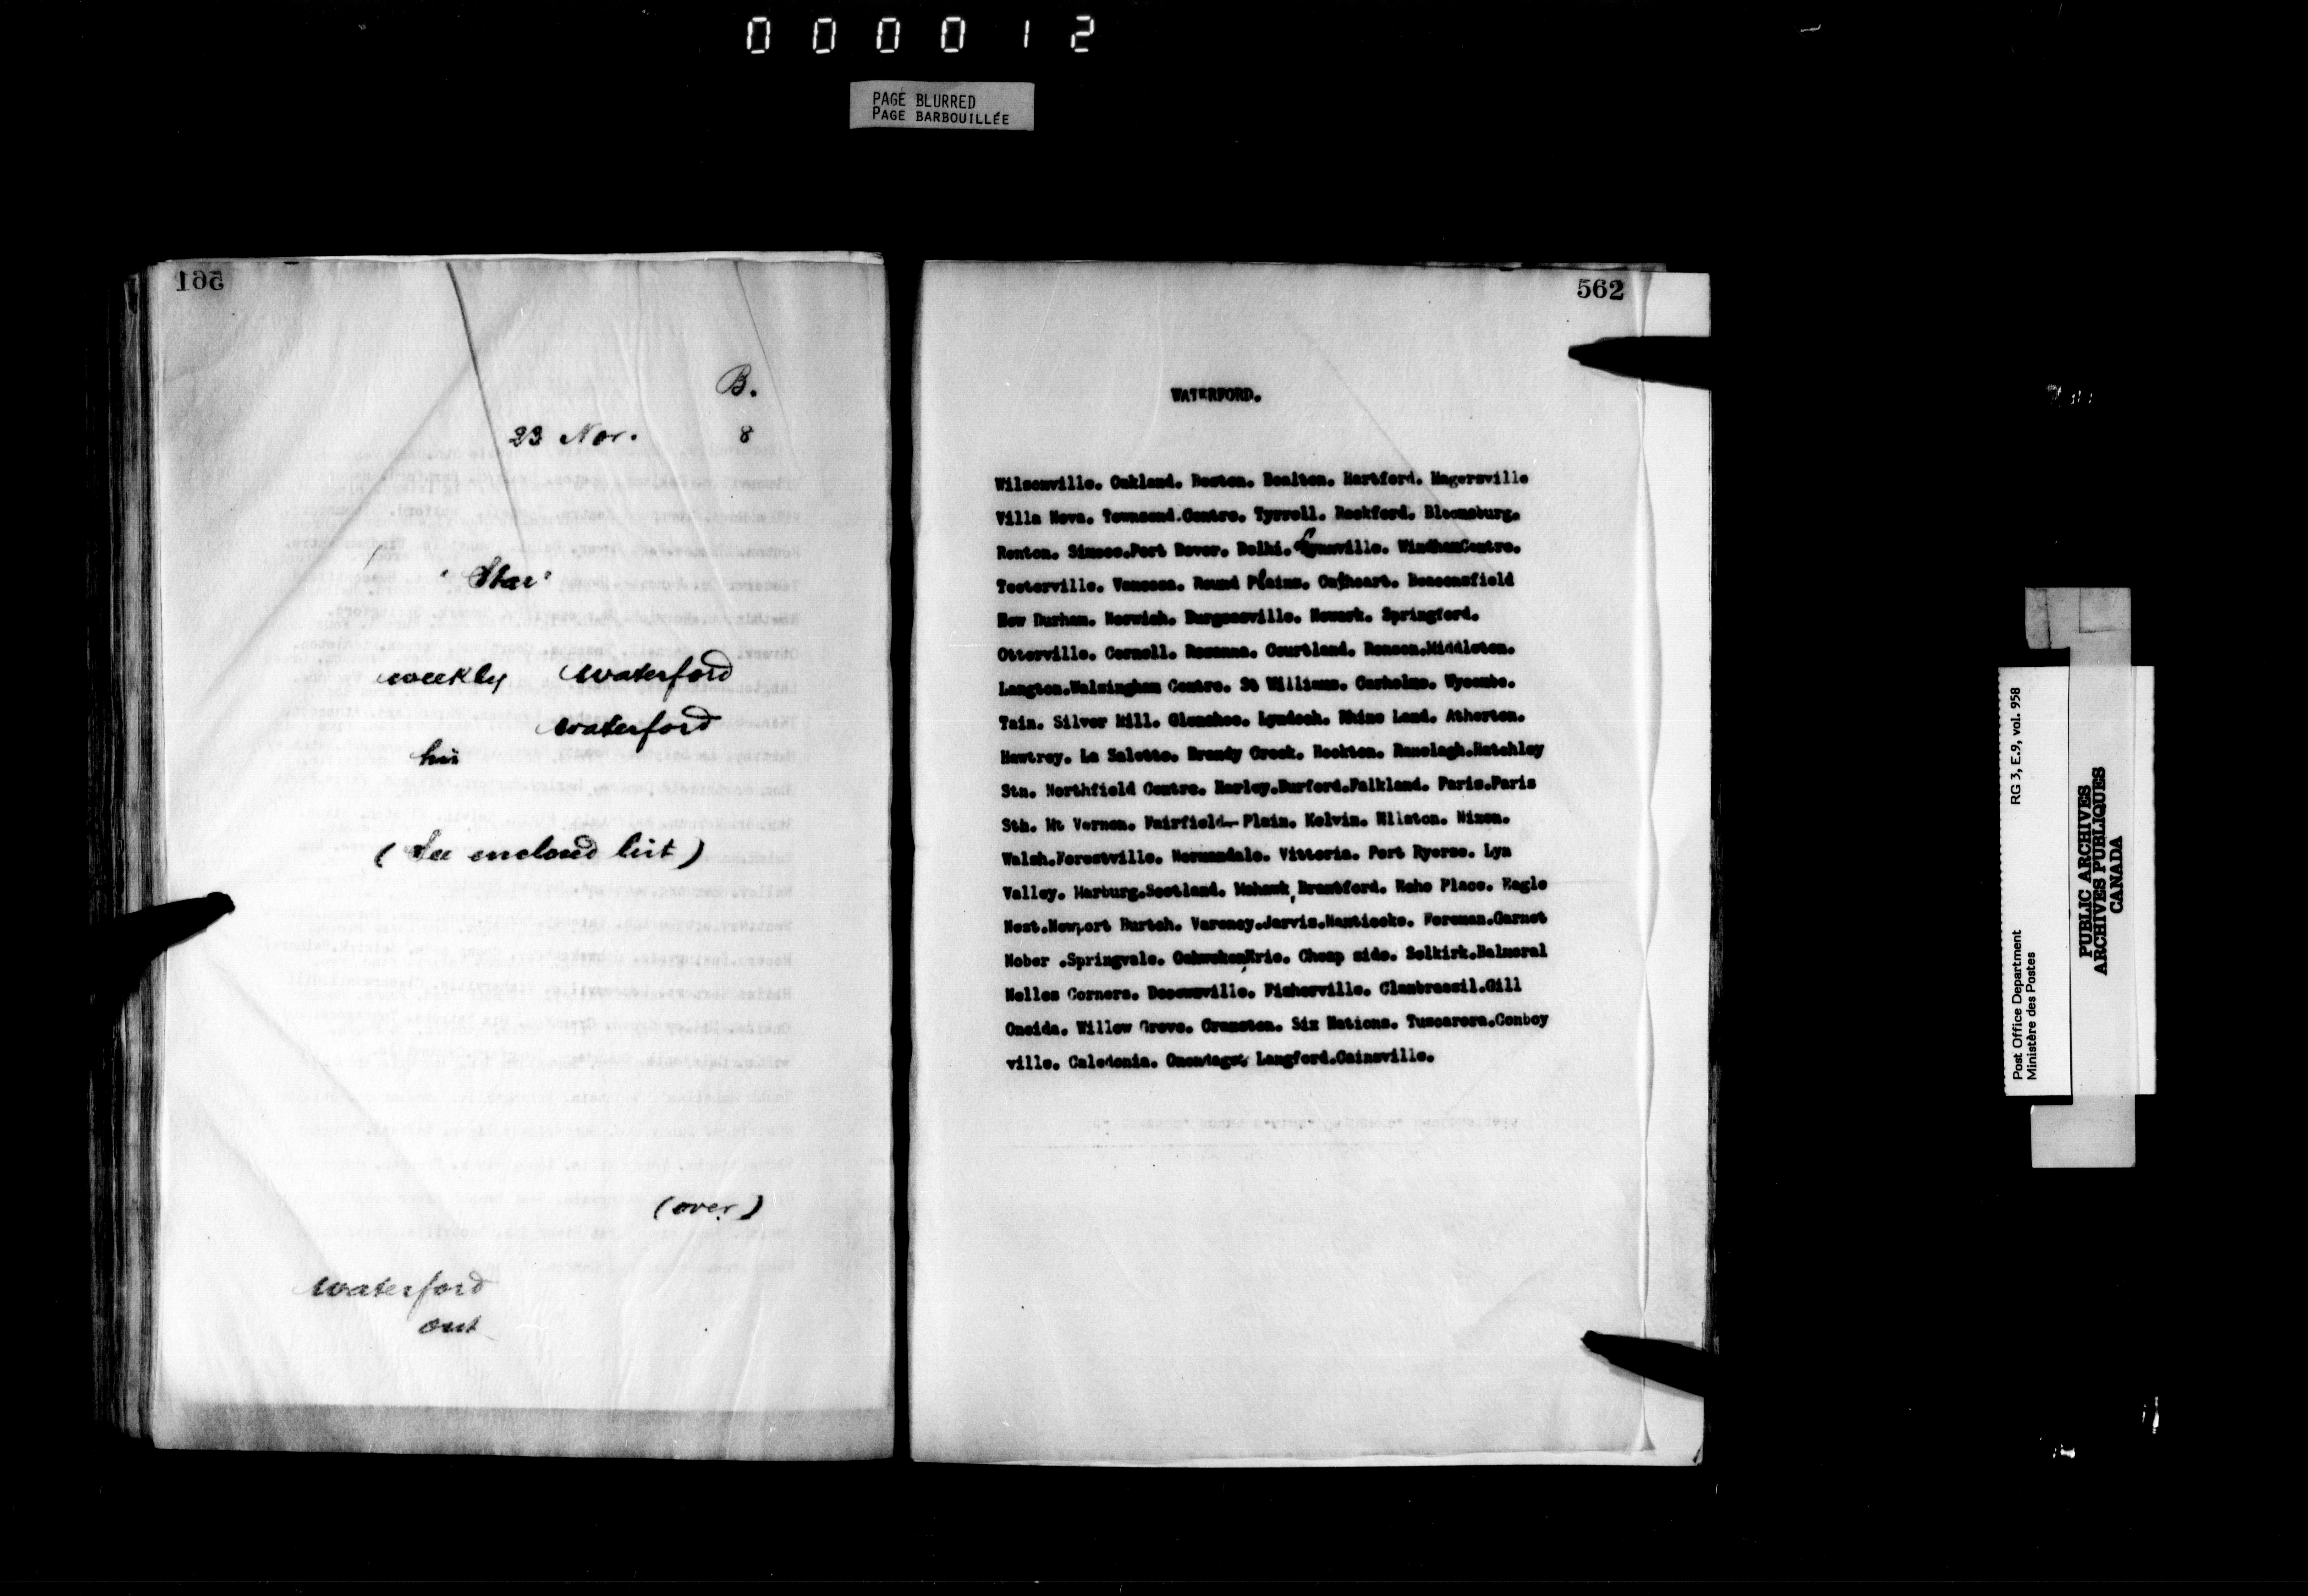 000012
PAGE BLURRED
PAGE BARBOUILLÉE
561
B.
23 Nov. 8
"Star"
weekly Waterford
Waterford
his
(See enclosed list)
(over)
Waterford
Ont
562
WATERFORD.
Wilsonville. Oakland. Boston. Bealton. Hartford. Hagersville
Villa Nova. Townsend.Centre. Tyrrell. Rockford. Bloomsburg.
Renton. Simcoe.Port Dover. Delhi. Lynnville. WindhamCentre.
Teeterville. Vanessa. Round Plains. Cathcart. Beaconsfield
New Durham. Norwich. Burgessville. Newark. Springford.
Otterville. Cornell. Rosanna. Courtland. Ronson.Middleton.
Langton.Walsingham Centre. St Williams. Carholme. Wycombe.
Tain. Silver Hill. Glenshee. Lyndoch. Rhine Land. Atherton.
Hawtrey. La Salette. Brandy Creek. Bookton. Ranelagh.Hatchley
Stn. Northfield Centre. Harley.Burford.Falkland. Paris.Paris
Sth. Mt Vernon. Fairfield-Plain. Kelvin. Nilston. Nixon.
Walsh.Forestville. Normandale. Vittoria. Port Ryerse. Lyn
Valley. Marburg.Scotland. Mohawk,Brantford. Echo Place. Eagle
Nest.Newport Burtch. Varency.Jarvis.Nanticoke. Foreman.Garnet
Nober .Springvale. Ohsweken,Erie. Cheap side. Selkirk.Balmoral
Nelles Corners. Decewsville. Fisherville. Clanbrassil.Gill
Oneida. Willow Grove. Cranston. Six Nations. Tuscarora.Conboy
ville. Caledonia. Onondaga. Langford.Cainsville.
Post Office Department RG 3, E.9, vol. 958
Ministère des Postes
PUBLIC ARCHIVES
ARCHIVES PUBLIQUES
CANADA